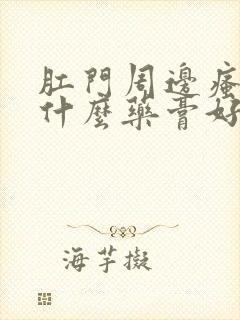 肛門周邊
什麼藥膏好
海芋擬